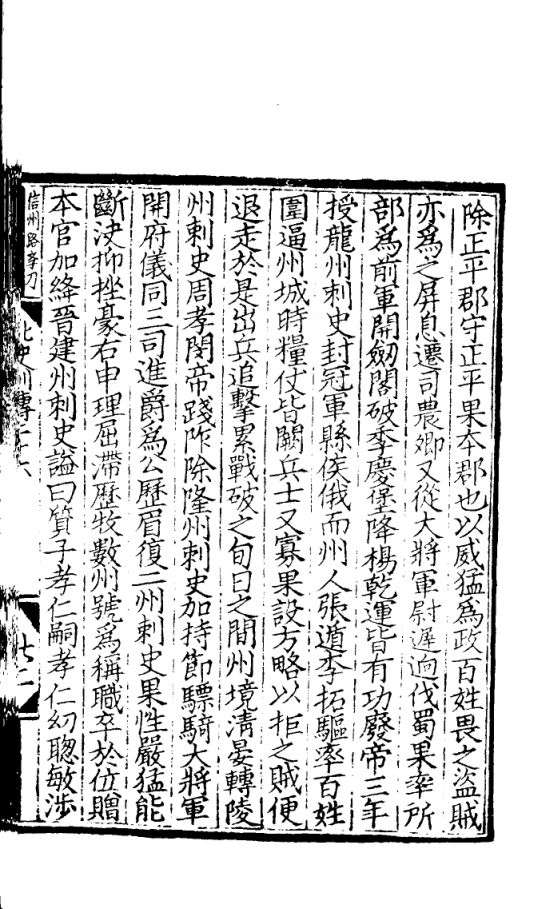 除正平郡守正平果本郡也以威猛爲政百姓畏之盜賊
亦爲之屏息遷司農卿又從大將軍尉遲迥伐蜀果率所
部爲前軍開劒閣破李慶堡降楊乾運皆有功廢帝三年
授龍州刺史封冠軍縣侯俄而州人張遁李拓驅率百姓
圍逼州城時糧仗皆闕兵士又寡果設方略以拒之賊便
退走於是出兵追擊累戰破之旬日之閒州境淸晏轉陵
州刺史周孝閔帝踐阼除隆州刺史加持節驃騎大將軍
開府儀同三司進爵爲公歷眉復二州刺史果性嚴猛能
斷決抑挫豪右申理屈滯歷牧數州號爲稱職卒於位贈
本官加絳晉建州刺史謚曰質子孝仁嗣孝仁幼聰敏涉
信州路學刀
北史列傳二十六